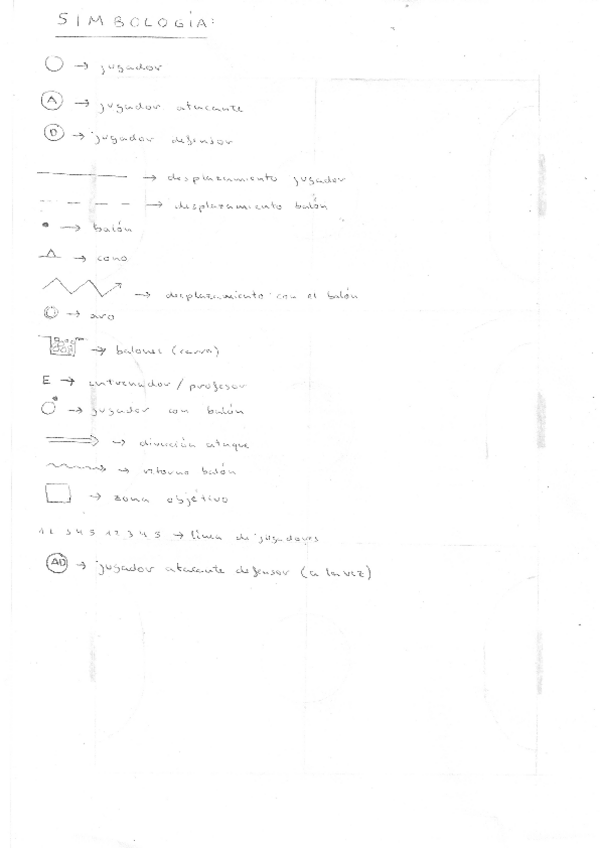 SIMBOLOGÍA:
→ jugador
A → jugador atacante
D → jugador defensor
→ desplazamiento jugador
→ desplazamiento balón
→ balón
→ cono
→ desplazamiento con el balón
→ aro
→ balones (carro)
E → entrenador / profesor
→ jugador con balón
→ dirección ataque
→ retorno balón
→ zona objetivo
1 2 3 4 5 1 2 3 4 5 → línea de jugadores
AD → jugador atacante defensor (a la vez)